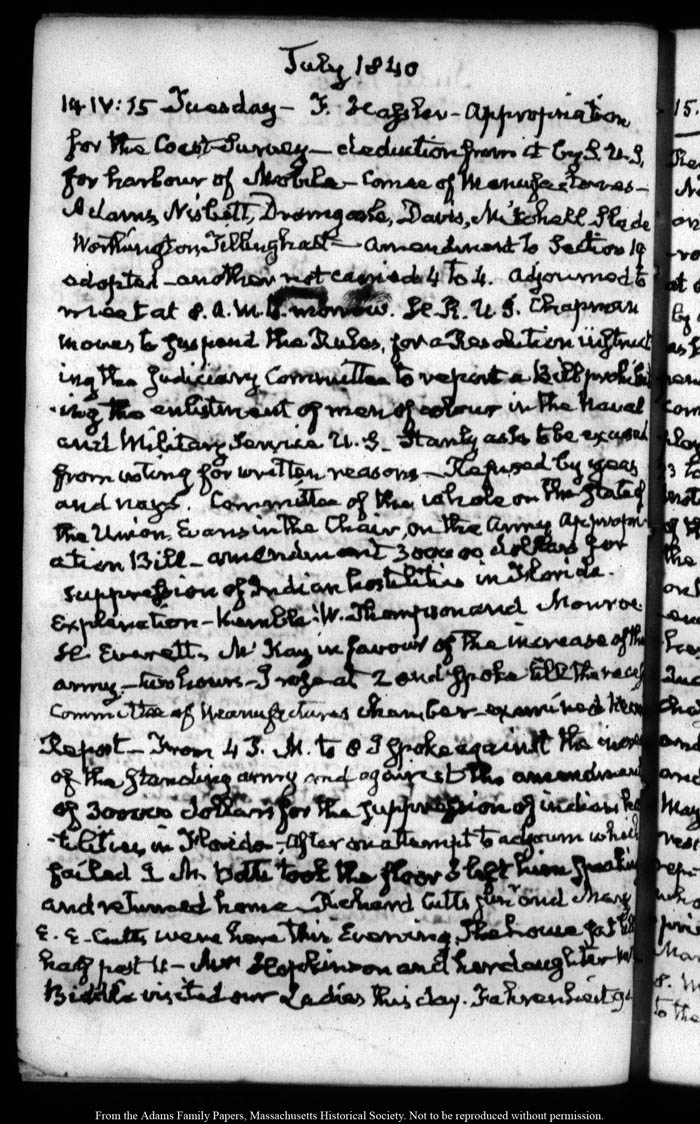 July 1840
14 IV:15 Tuesday - F. Hassler - Appropriation
for the Coast Survey - deduction from it by S. U.S.
for harbour of Mobile - Comee of Manufactures -
Adams, Nisbett, Dromgoole, Davis, Mitchell, Slade
Worthington, Tillinghast - amendment to Section 19
adopted - another not carried 4 to 4. adjourned to
meet at 8. A.M. morrow. H.R. U.S. Chapman
moves to suspend the Rules, for a Resolution instruct
ing the Judiciary Committee to report a Bill prohibi
ting the enlistment of men of colour in the Naval
and Military Service U.S - Stanly asks to be excused
from voting for written reasons - Refused by yeas
and nays. Committee of the whole on the state of
the Union, Evans in the Chair, on the Army Appropri
ation Bill - amendment 300000 dollars for
suppression of Indian hostilities in Florida.
Explanation - Kemble: W. Thompson and Monroe.
H. Everett, Mc Kay in favour of the increase of the
army - two hours - I rose at 2 and spoke till the recess
Committee of Manufactures chamber - examined
Report - From 4 P. M. to 8 I spoke against the incre
of the standing army and against the amendment
of 300000 dollars for the suppression of indian hos
tilities in Florida - After an attempt to adjourn which
failed J. M. Botts took the floor I left him speaking
and returned home - Richard Cutts junr and Mary
E. E. Cutts were here this Evening. The house sat till
half past 11 - Mrs Hopkinson and her daughter
Biddle visited our Ladies this day. Fahrenheit
15.
From the Adams Family Papers, Massachusetts Historical Society. Not to be reproduced without permission.